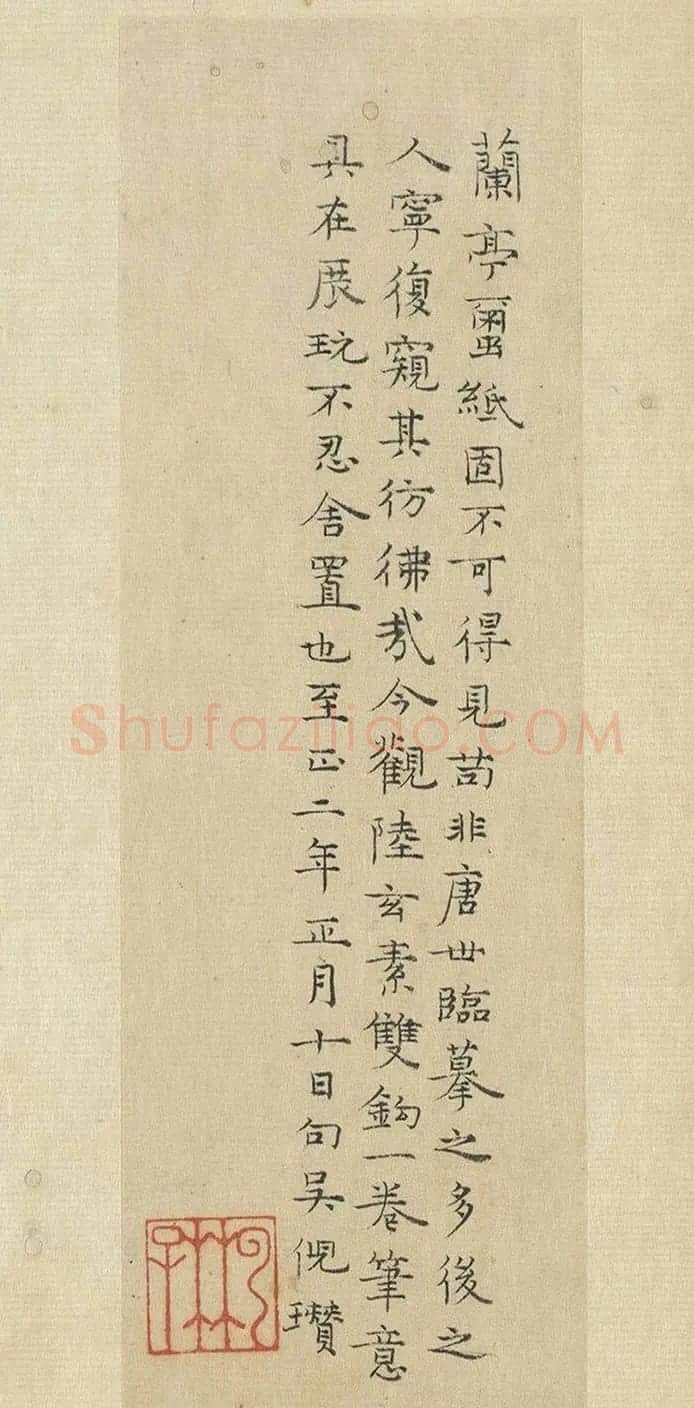 蘭亭蠒紙固不可得見苟非唐世臨摹之多後之
人寧復窺其彷彿哉今觀陸玄素雙鈎一卷筆意
具在展玩不忍舍置也至正二年正月十日句吳倪瓚
Shufaziliao.COM